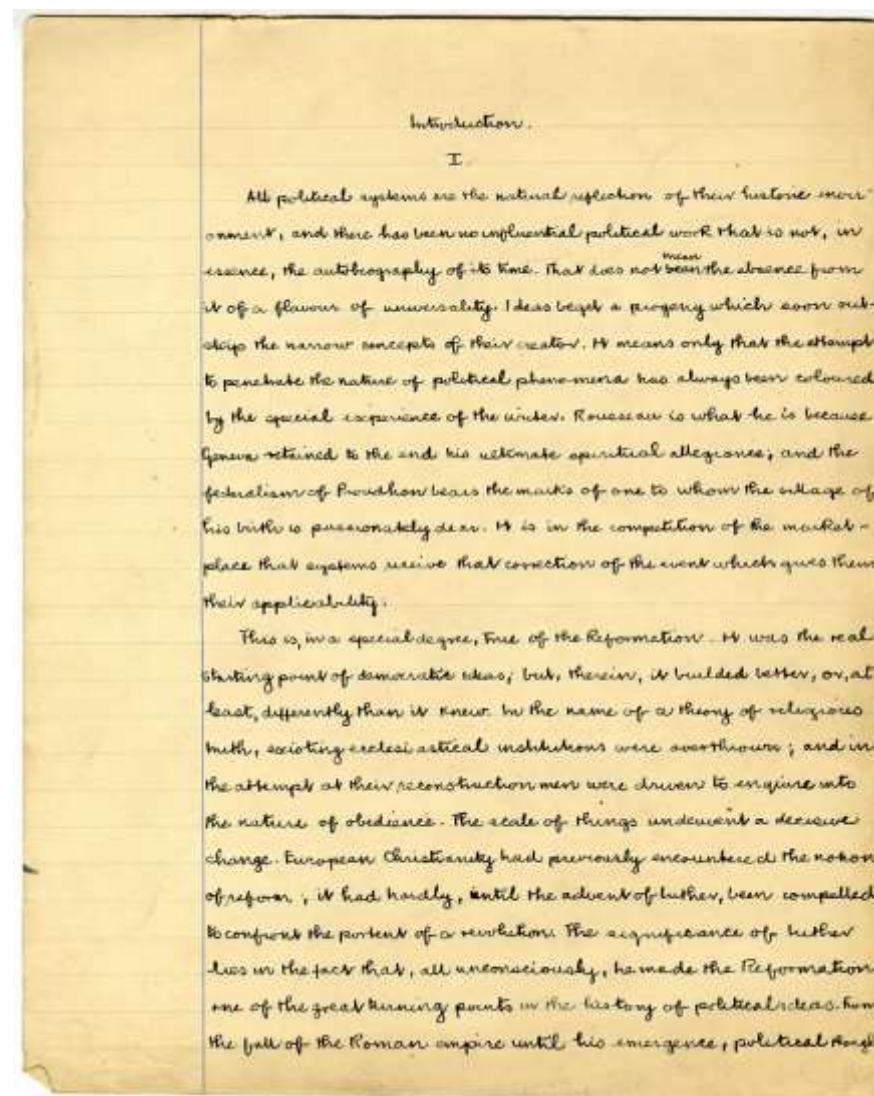 Introduction.
I
All political systems are the natural reflection of their historic envir-
onment, and there has been no influential political work that is not, in
essence, the autobiography of its time. That does not been mean the absence from
it of a flavour of universality. Ideas beget a progeny which soon out-
skip the narrow concepts of their creator. It means only that the attempt
to penetrate the nature of political phenomena has always been coloured
by the special experience of the writer. Rousseau is what he is because
Geneva retained to the end his ultimate spiritual allegiance; and the
federalism of Proudhon bears the marks of one to whom the village of
his birth is passionately dear. It is in the competition of the market-
place that systems receive that correction of the event which gives them
their applicability.
This is, in a special degree, true of the Reformation. It was the real
starting point of democratic ideas; but, therein, it builded better, or, at
least, differently than it knew. In the name of a theory of religious
truth, existing ecclesiastical institutions were overthrown; and in
the attempt at their reconstruction men were driven to enquire into
the nature of obedience. The scale of things underwent a decisive
change. European Christianity had previously encountered the notion
of reform; it had hardly, until the advent of Luther, been compelled
to confront the portent of a revolution. The significance of Luther
lies in the fact that, all unconsciously, he made the Reformation
one of the great turning points in the history of political ideas. From
the fall of the Roman empire until his emergence, political though